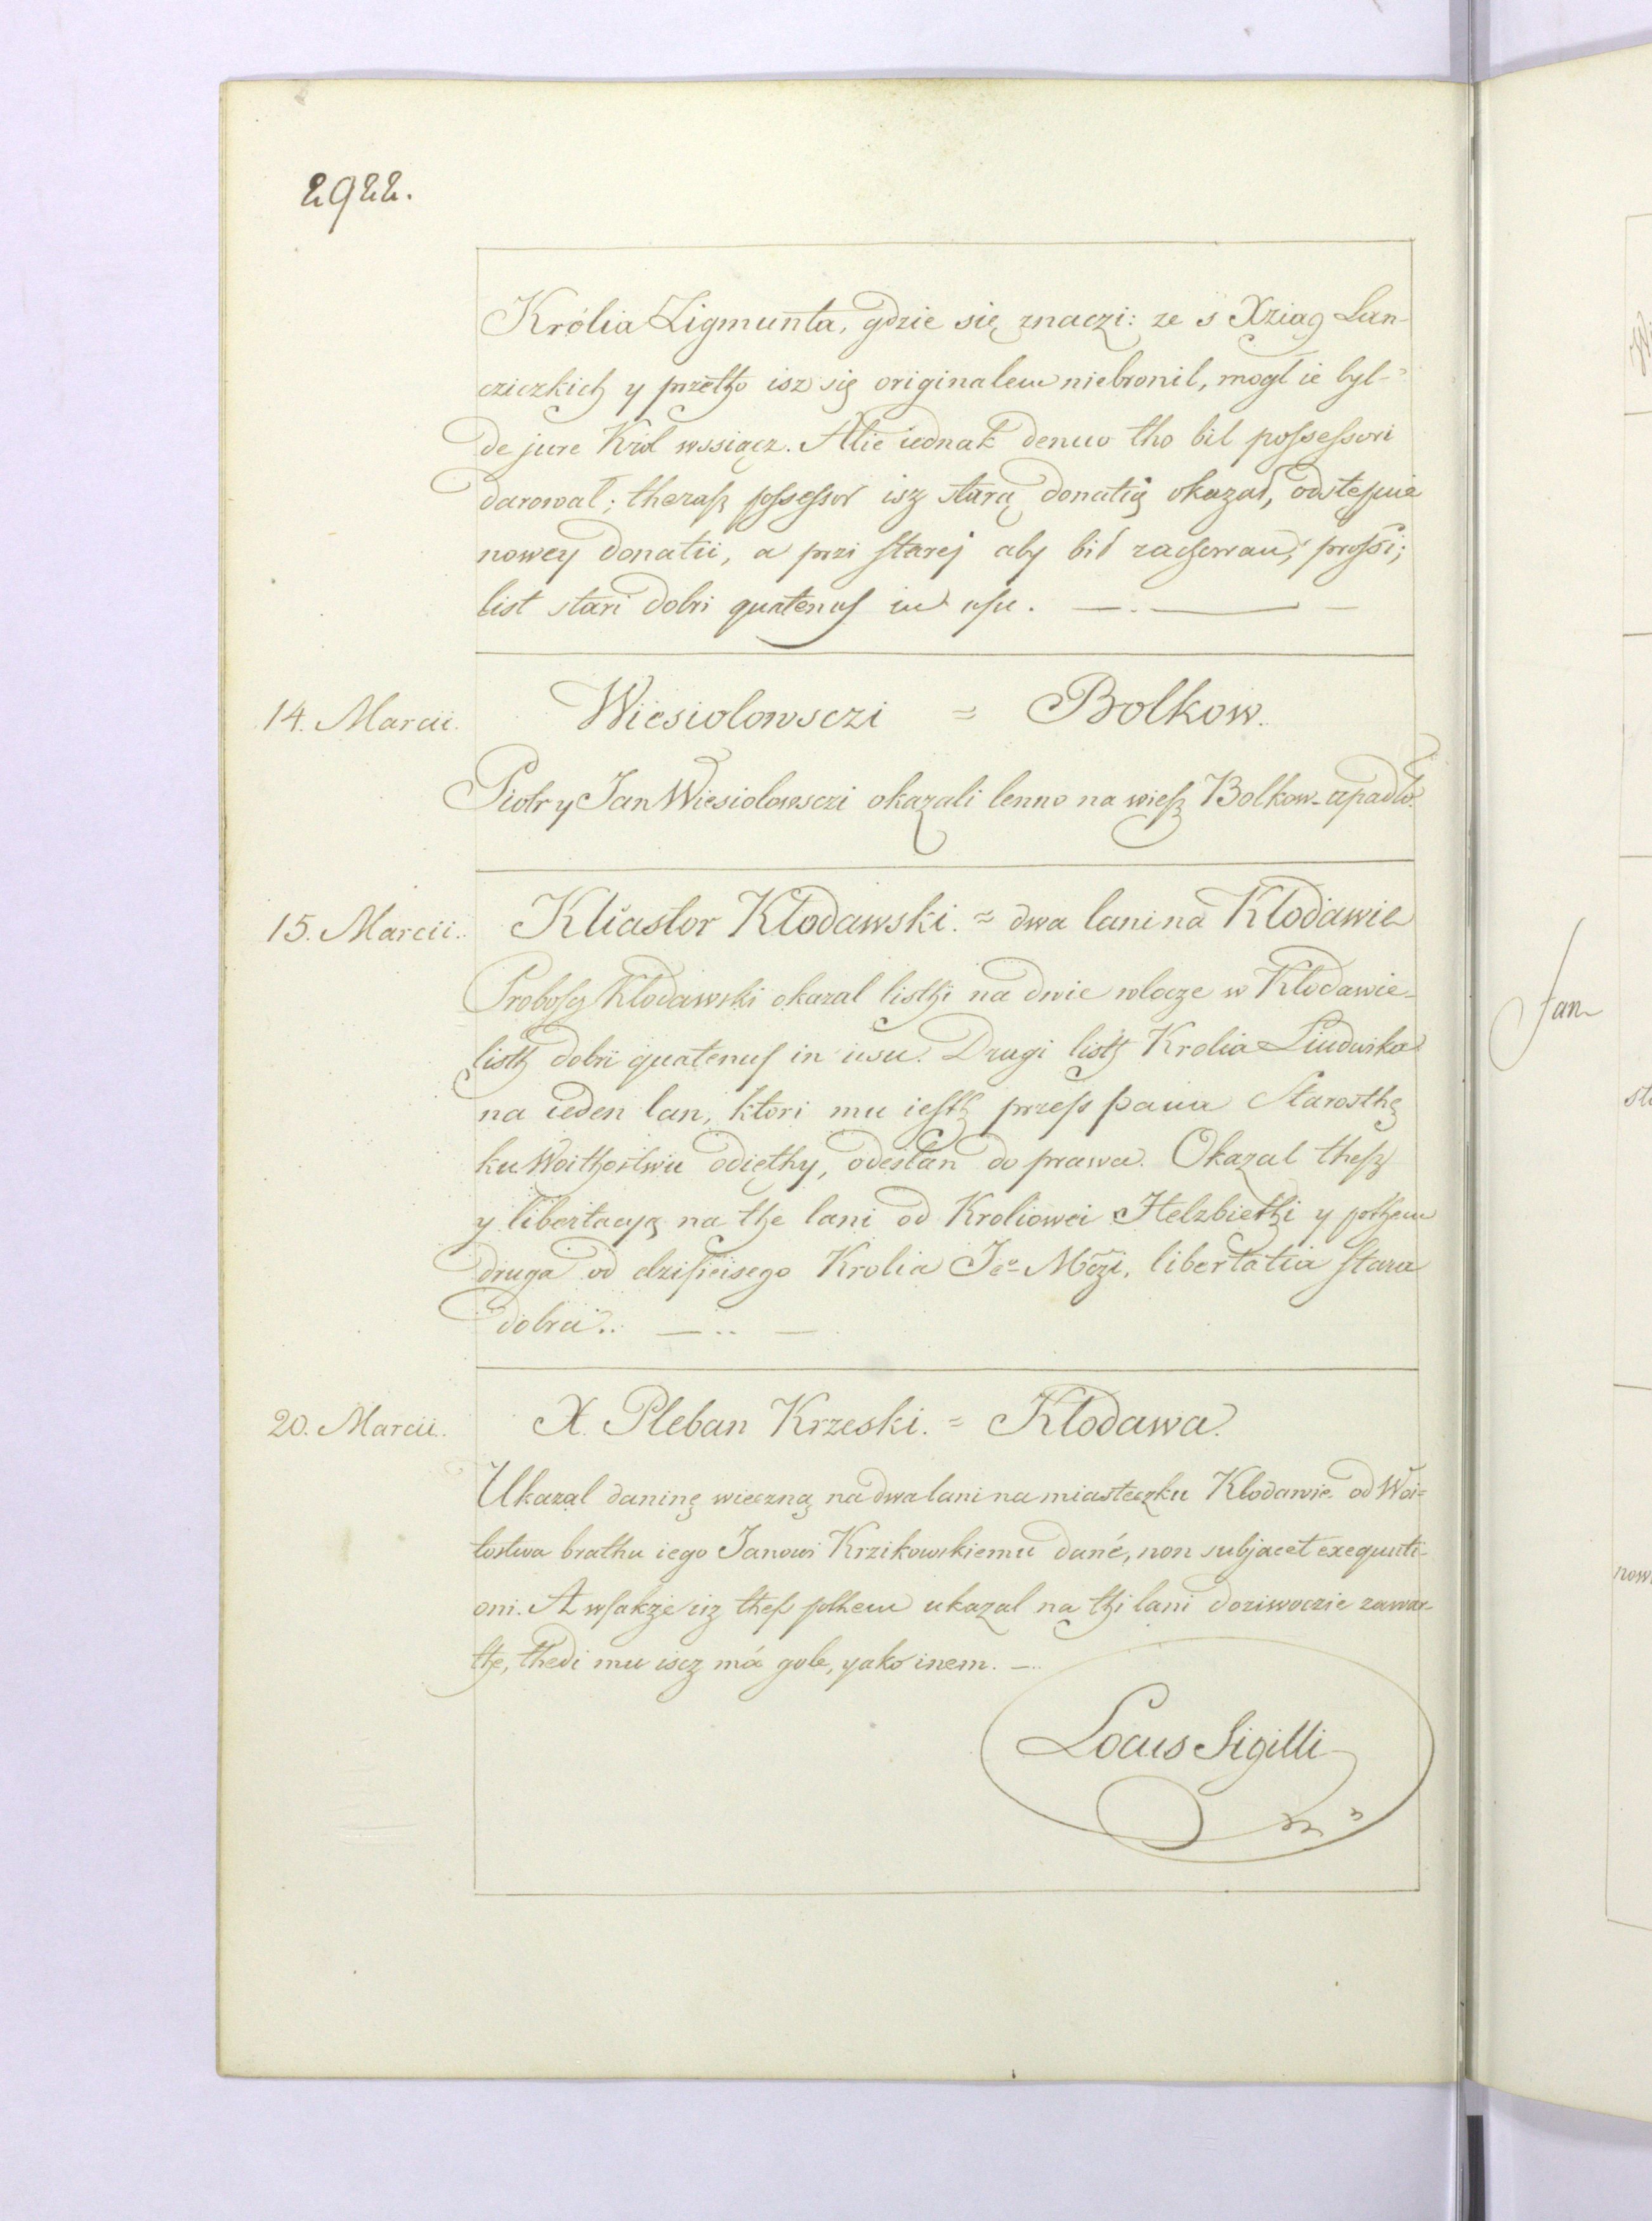 2922.
Królia Zigmunta, gdzie się znaczi: ze s Xziąg Lan-
cziczkich y przetho isz się originalem niebronil, mogl ie byl
de jure Król wssiącz. Alie iednak denuo tho bil possessori
darowal; therasz possessor isz starą donatią okazał, odstępuie
nowey donatii, a przi starej aby bił zachowan, prossi;
list stari dobri quatenus in usu.
14. Marcii. Wiesiolowsczi = Bolkow.
Piotr y Jan Wiesiolowsczi okazali lenno na wiesz Bolkow upadło.
15. Marcii. Kliastor Kłodawski. = dwa lani na Kłodawie
Probosz Kłodawski okazal listhi na dwie wlocze w Kłodawie
listh dobri quatenus in usu. Drugi listh Krolia Liudwika
na ieden lan, ktori mu iesth przess pana Starosthę
ku Woithostwu odięthy, odesłan do prawa. Okazal thesz
y libertacyą na the lani od Kroliowei Helzbiethi y pothem
druga od dzisieisego Krolia Jeo Mczi, libertatia stara
dobra.
20. Marcii. X. Pleban Krzeski. = Kłodawa.
Ukazal daninę wieczną na dwa lani na miasteczku Kłodawie od Woi=
tostwa brathu iego Janowi Krzikowskiemu dané, non subjacet exequuti-
oni. A wsakże isz thess pothem ukazal na thi lani doziwoczie zawar-
the, thedi mu iscz má gole, yako inem.
Locus Sigilli
Jan